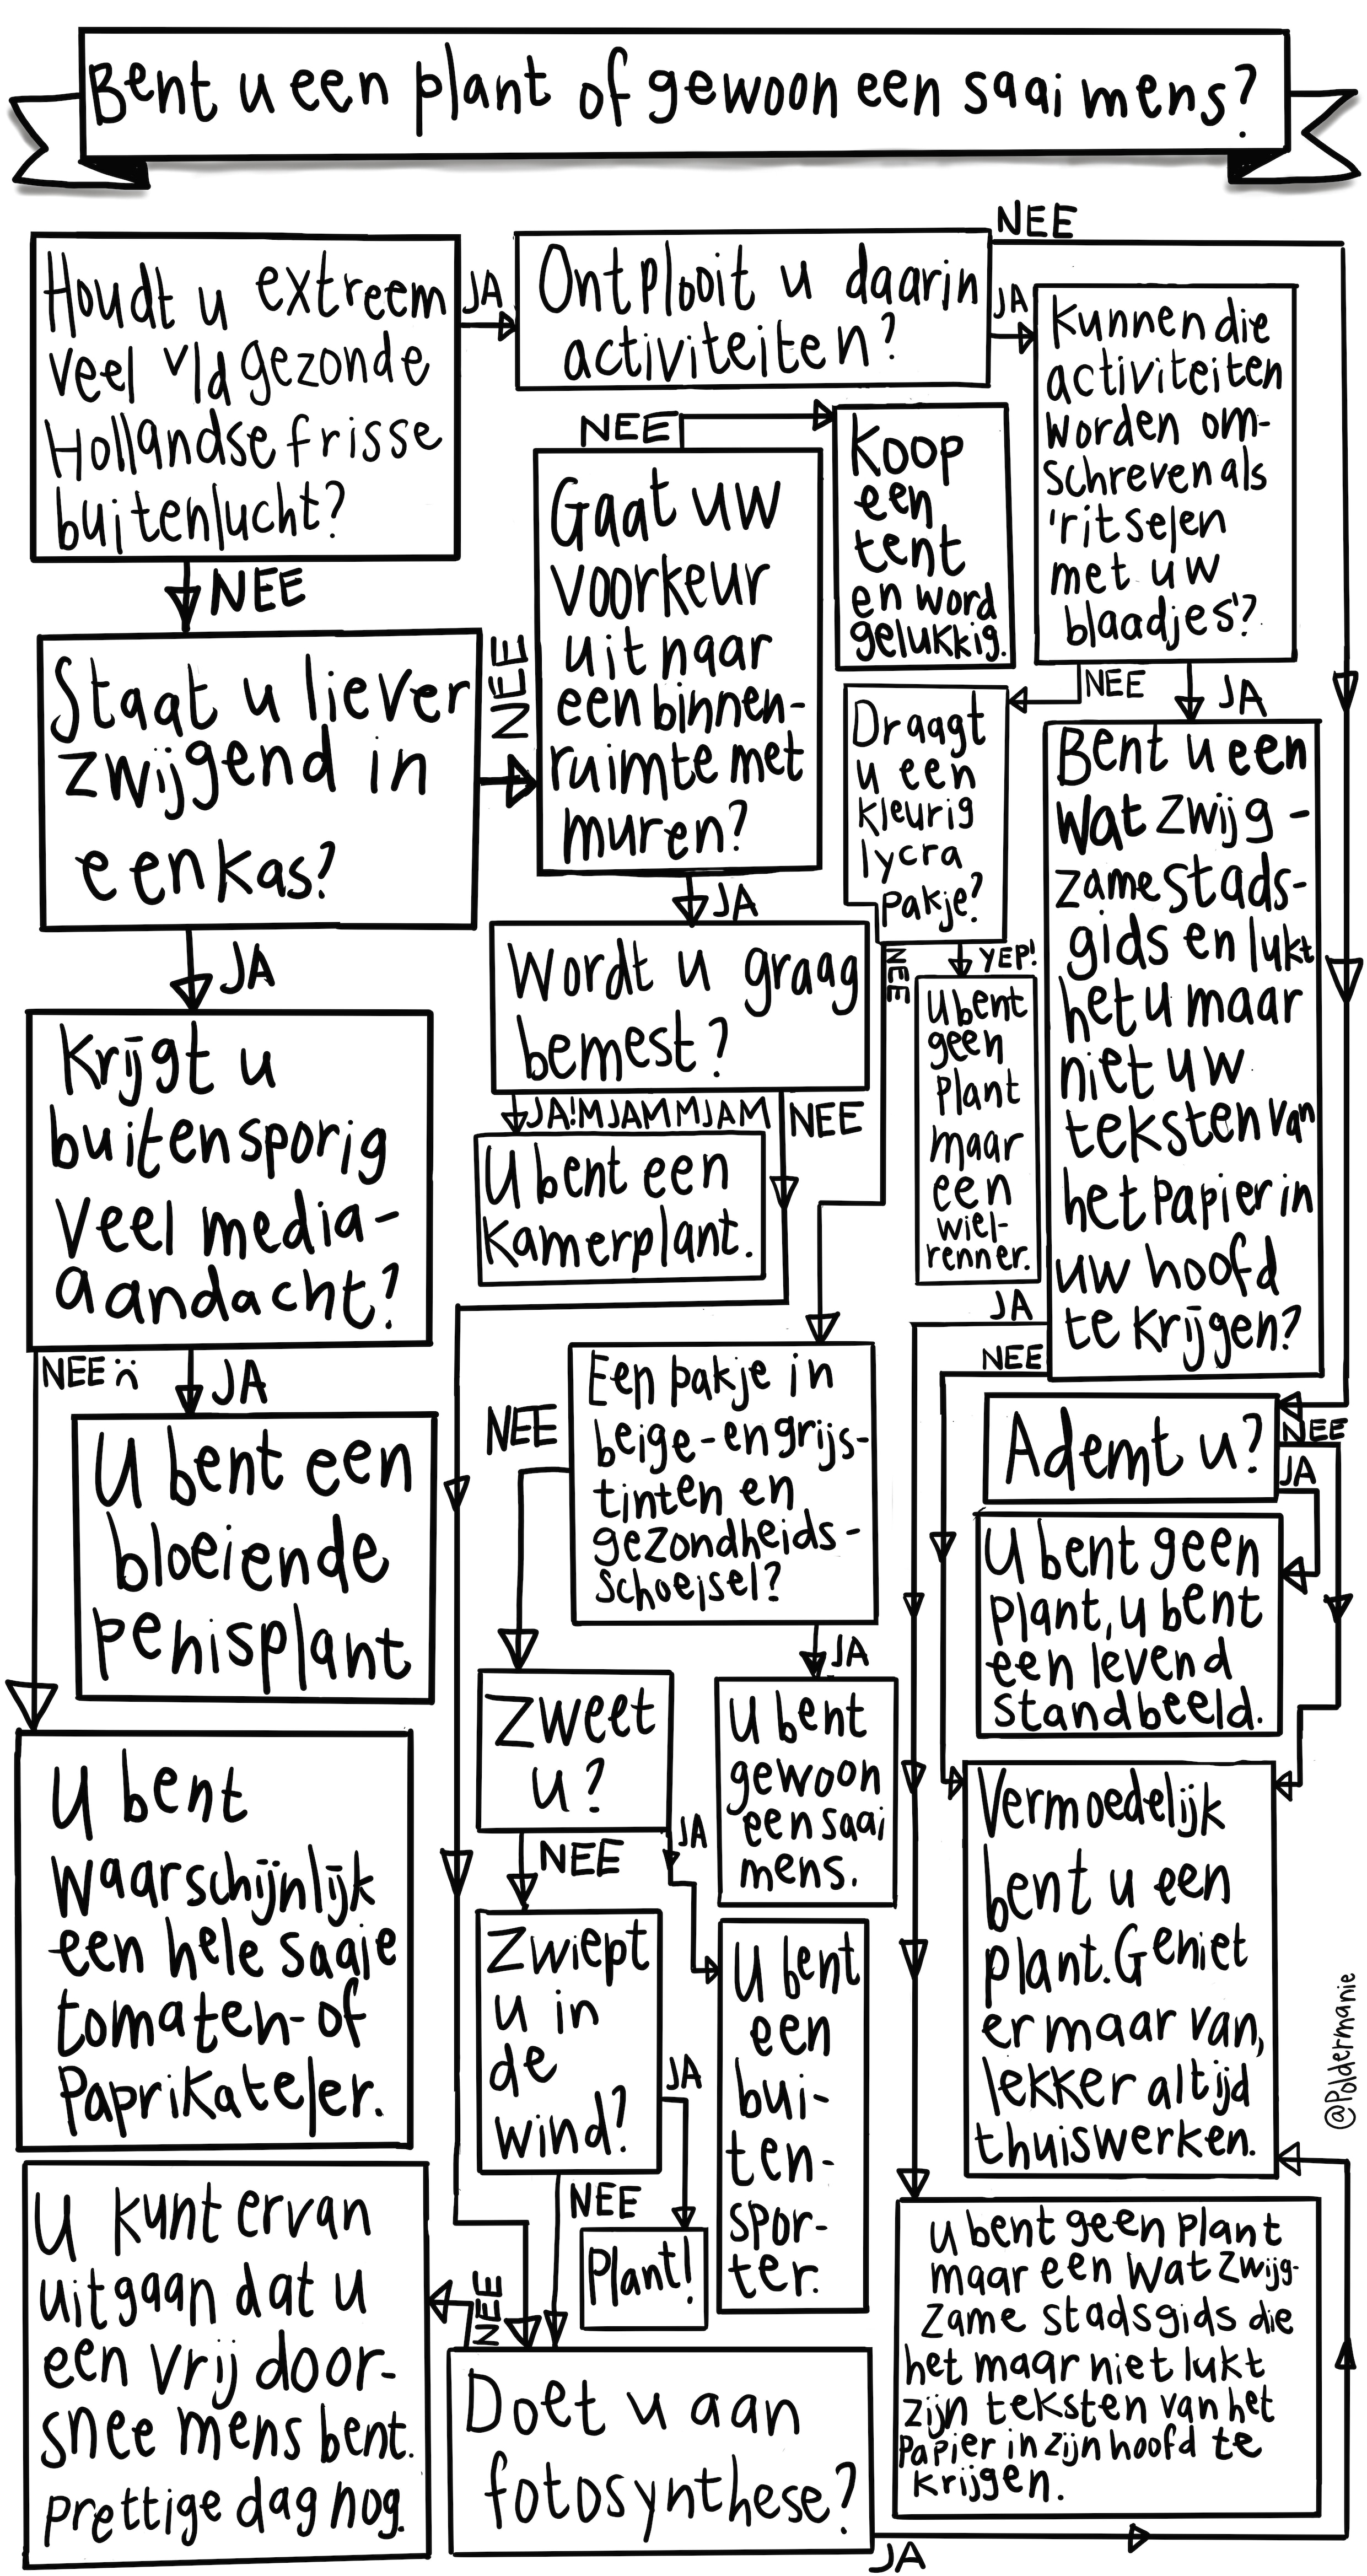 Bent u een plant of gewoon een saai mens?
Houdt u extreem
veel v/d gezonde
Hollandse frisse
buitenlucht?
JA
NEE
Ontplooit u daarin
activiteiten?
NEE
JA
Kunnen die
activiteiten
worden om-
schreven als
'ritselen
met uw
blaadjes'?
NEE
JA
Staat u liever
zwijgend in
een kas?
NEE
JA
Gaat uw
voorkeur
uit naar
een binnen-
ruimte met
muren?
NEE
JA
Koop
een
tent
en word
gelukkig.
Draagt
u een
kleurig
lycra
pakje?
NEE
YEP!
U bent
geen
plant
maar
een
wiel-
renner.
Bent u een
wat zwijg-
zame stads-
gids en lukt
het u maar
niet uw
teksten van
het papier in
uw hoofd
te krijgen?
JA
NEE
Krijgt u
buitensporig
veel media-
aandacht?
NEE :(
JA
Wordt u graag
bemest?
JA! MJAMMJAM
NEE
U bent een
kamerplant.
U bent een
bloeiende
penisplant
U bent
waarschijnlijk
een hele saaie
tomaten- of
paprikateler.
Een pakje in
beige- en grijs-
tinten en
gezondheids-
schoeisel?
NEE
JA
Ademt u?
NEE
JA
U bent geen
plant, u bent
een levend
standbeeld.
Zweet
u?
NEE
JA
U bent
gewoon
een saai
mens.
Vermoedelijk
bent u een
plant. Geniet
er maar van,
lekker altijd
thuiswerken.
Zwiept
u in
de
wind?
JA
NEE
Plant!
U bent
een
bui-
ten-
spor-
ter.
U kunt ervan
uitgaan dat u
een vrij door-
snee mens bent.
Prettige dag nog.
NEE
Doet u aan
fotosynthese?
JA
U bent geen plant
maar een wat zwijg-
zame stadsgids die
het maar niet lukt
zijn teksten van het
papier in zijn hoofd te
krijgen.
@Poldermanie